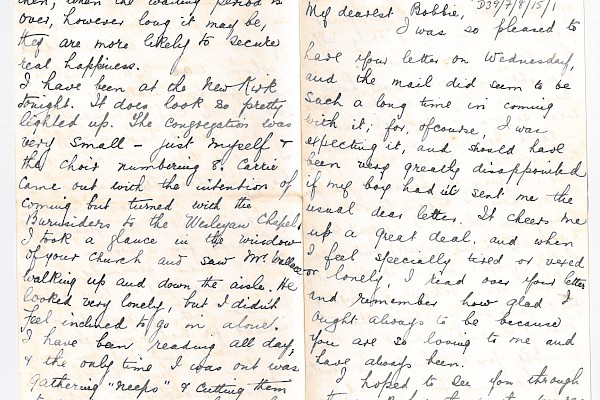 then, when the waiting period is
over, however long it may be,
they are more likely to secure
real happiness.
I have been at the New Kirk
tonight. It does look so pretty
lighted up. The Congregation was
very small – just myself &
the choir numbering 8. Carrie
came out with the intention of
coming but turned with the
Burnsiders to the Wesleyan Chapel.
I took a glance in the window
of your church and saw Mr. Wallace
walking up and down the aisle. He
looked very lonely, but I didn't
feel inclined to go in alone.
I have been reading all day,
& the only time I was out was
gathering "neeps" & cutting them
D39/7/8/15/1
My dearest Bobbie,
I was so pleased to
have your letter on Wednesday,
and the mail did seem to be
such a long time in coming
with it; for, ofcourse, I was
expecting it, and should have
been very greatly disappointed
if my boy had n't sent me the
usual dear letter. It cheers me
up a great deal, and when
I feel specially tired or vexed
or lonely, I read over your letter
and remember how glad I
ought always to be because
you are so loving to me and
have always been.
I hoped to see you through